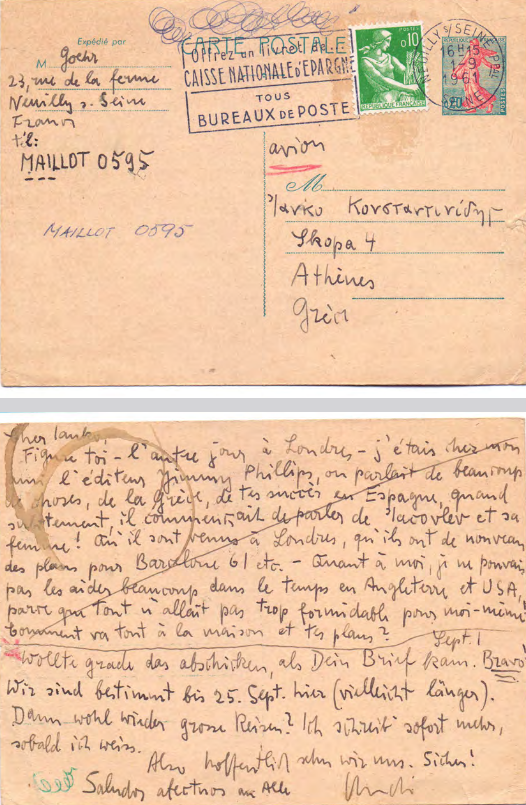 Expédié par
M Goehr
23, rue de la ferme
Neuilly s. Seine
France
tél:
MAILLOT 0595
MAILLOT 0595
CARTE POSTALE
Offrez un livret de
CAISSE NATIONALE D'EPARGNE
TOUS
BUREAUX DE POSTE
POSTES
0,10
REPUBLIQUE FRANÇAISE
NEUILLY S/ SEINE PPAL
16H15
1-9
1961
SEINE
0,20
avion
M
Γιάνκο Κονσταντινίδης
Skopa 4
Athènes
Grèce
Cher Ianko,
Figure toi - l'autre jour à Londres - j'étais chez mon
ami l'éditeur Jimmy Phillips, on parlait de beaucoup
de choses, de la Grèce, de tes succès en Espagne, quand
subitement, il commençait de parler de Iacovlev et sa
femme! Qu'il sont venus à Londres, qu'ils ont de nouveau
des plans pour Barcelone 61 etc. - Quant à moi, je ne pouvais
pas les aider beaucoup dans le temps en Angleterre et USA,
parce que tout n'allait pas trop formidable pour moi-même
Comment va tout à la maison et tes plans?
Sept. 1
Wollte grade das abschicken, als Dein Brief kam. Bravo!
Wir sind bestimmt bis 25. Sept. hier (vielleicht länger).
Dann wohl wieder grosse Reisen? Ich schreib sofort mehr,
sobald ich weiss.
Also hoffentlich sehn wir uns. Sicher!
Saludos afectuos an Alle